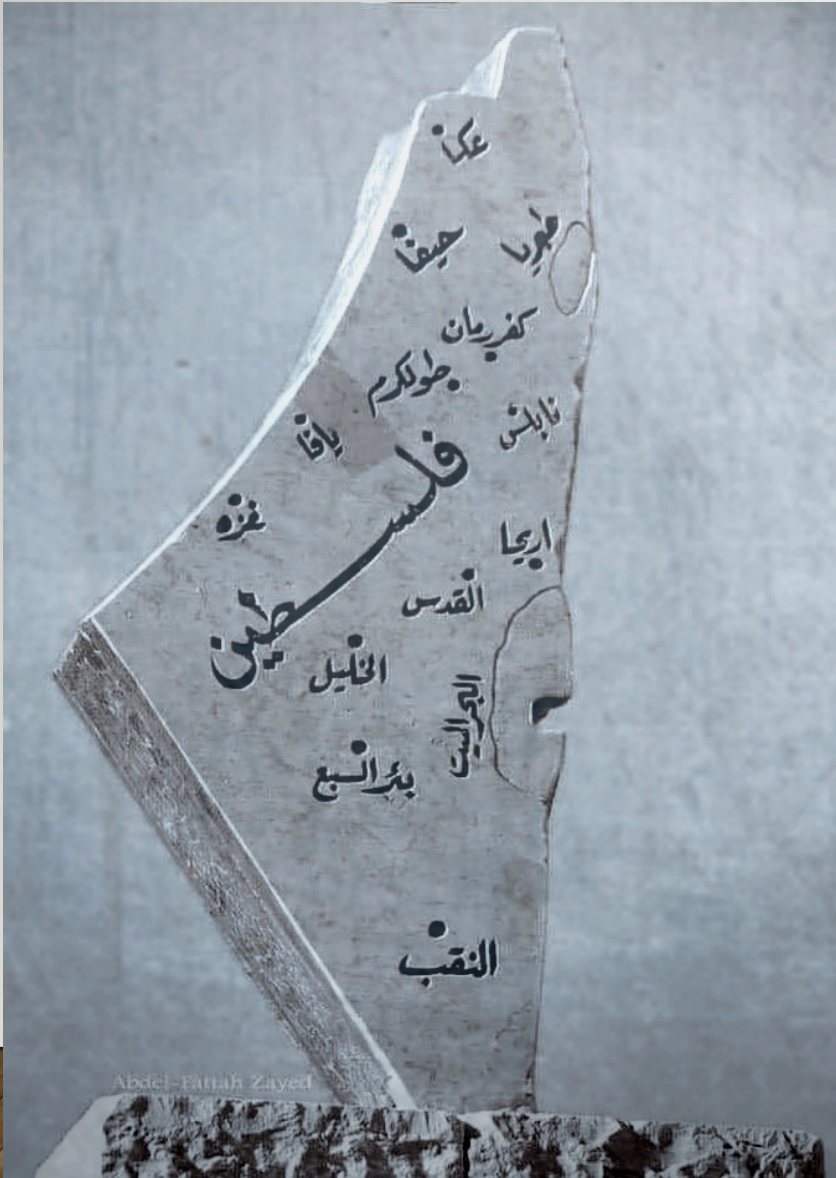 عكا
حيفا
طبريا
كفررمان
طولكرم
نابلس
يافا
فلسطين
غزه
اريحا
القدس
الخليل
البحر الميت
بئر السبع
النقب
Abdel-Fattah Zayed